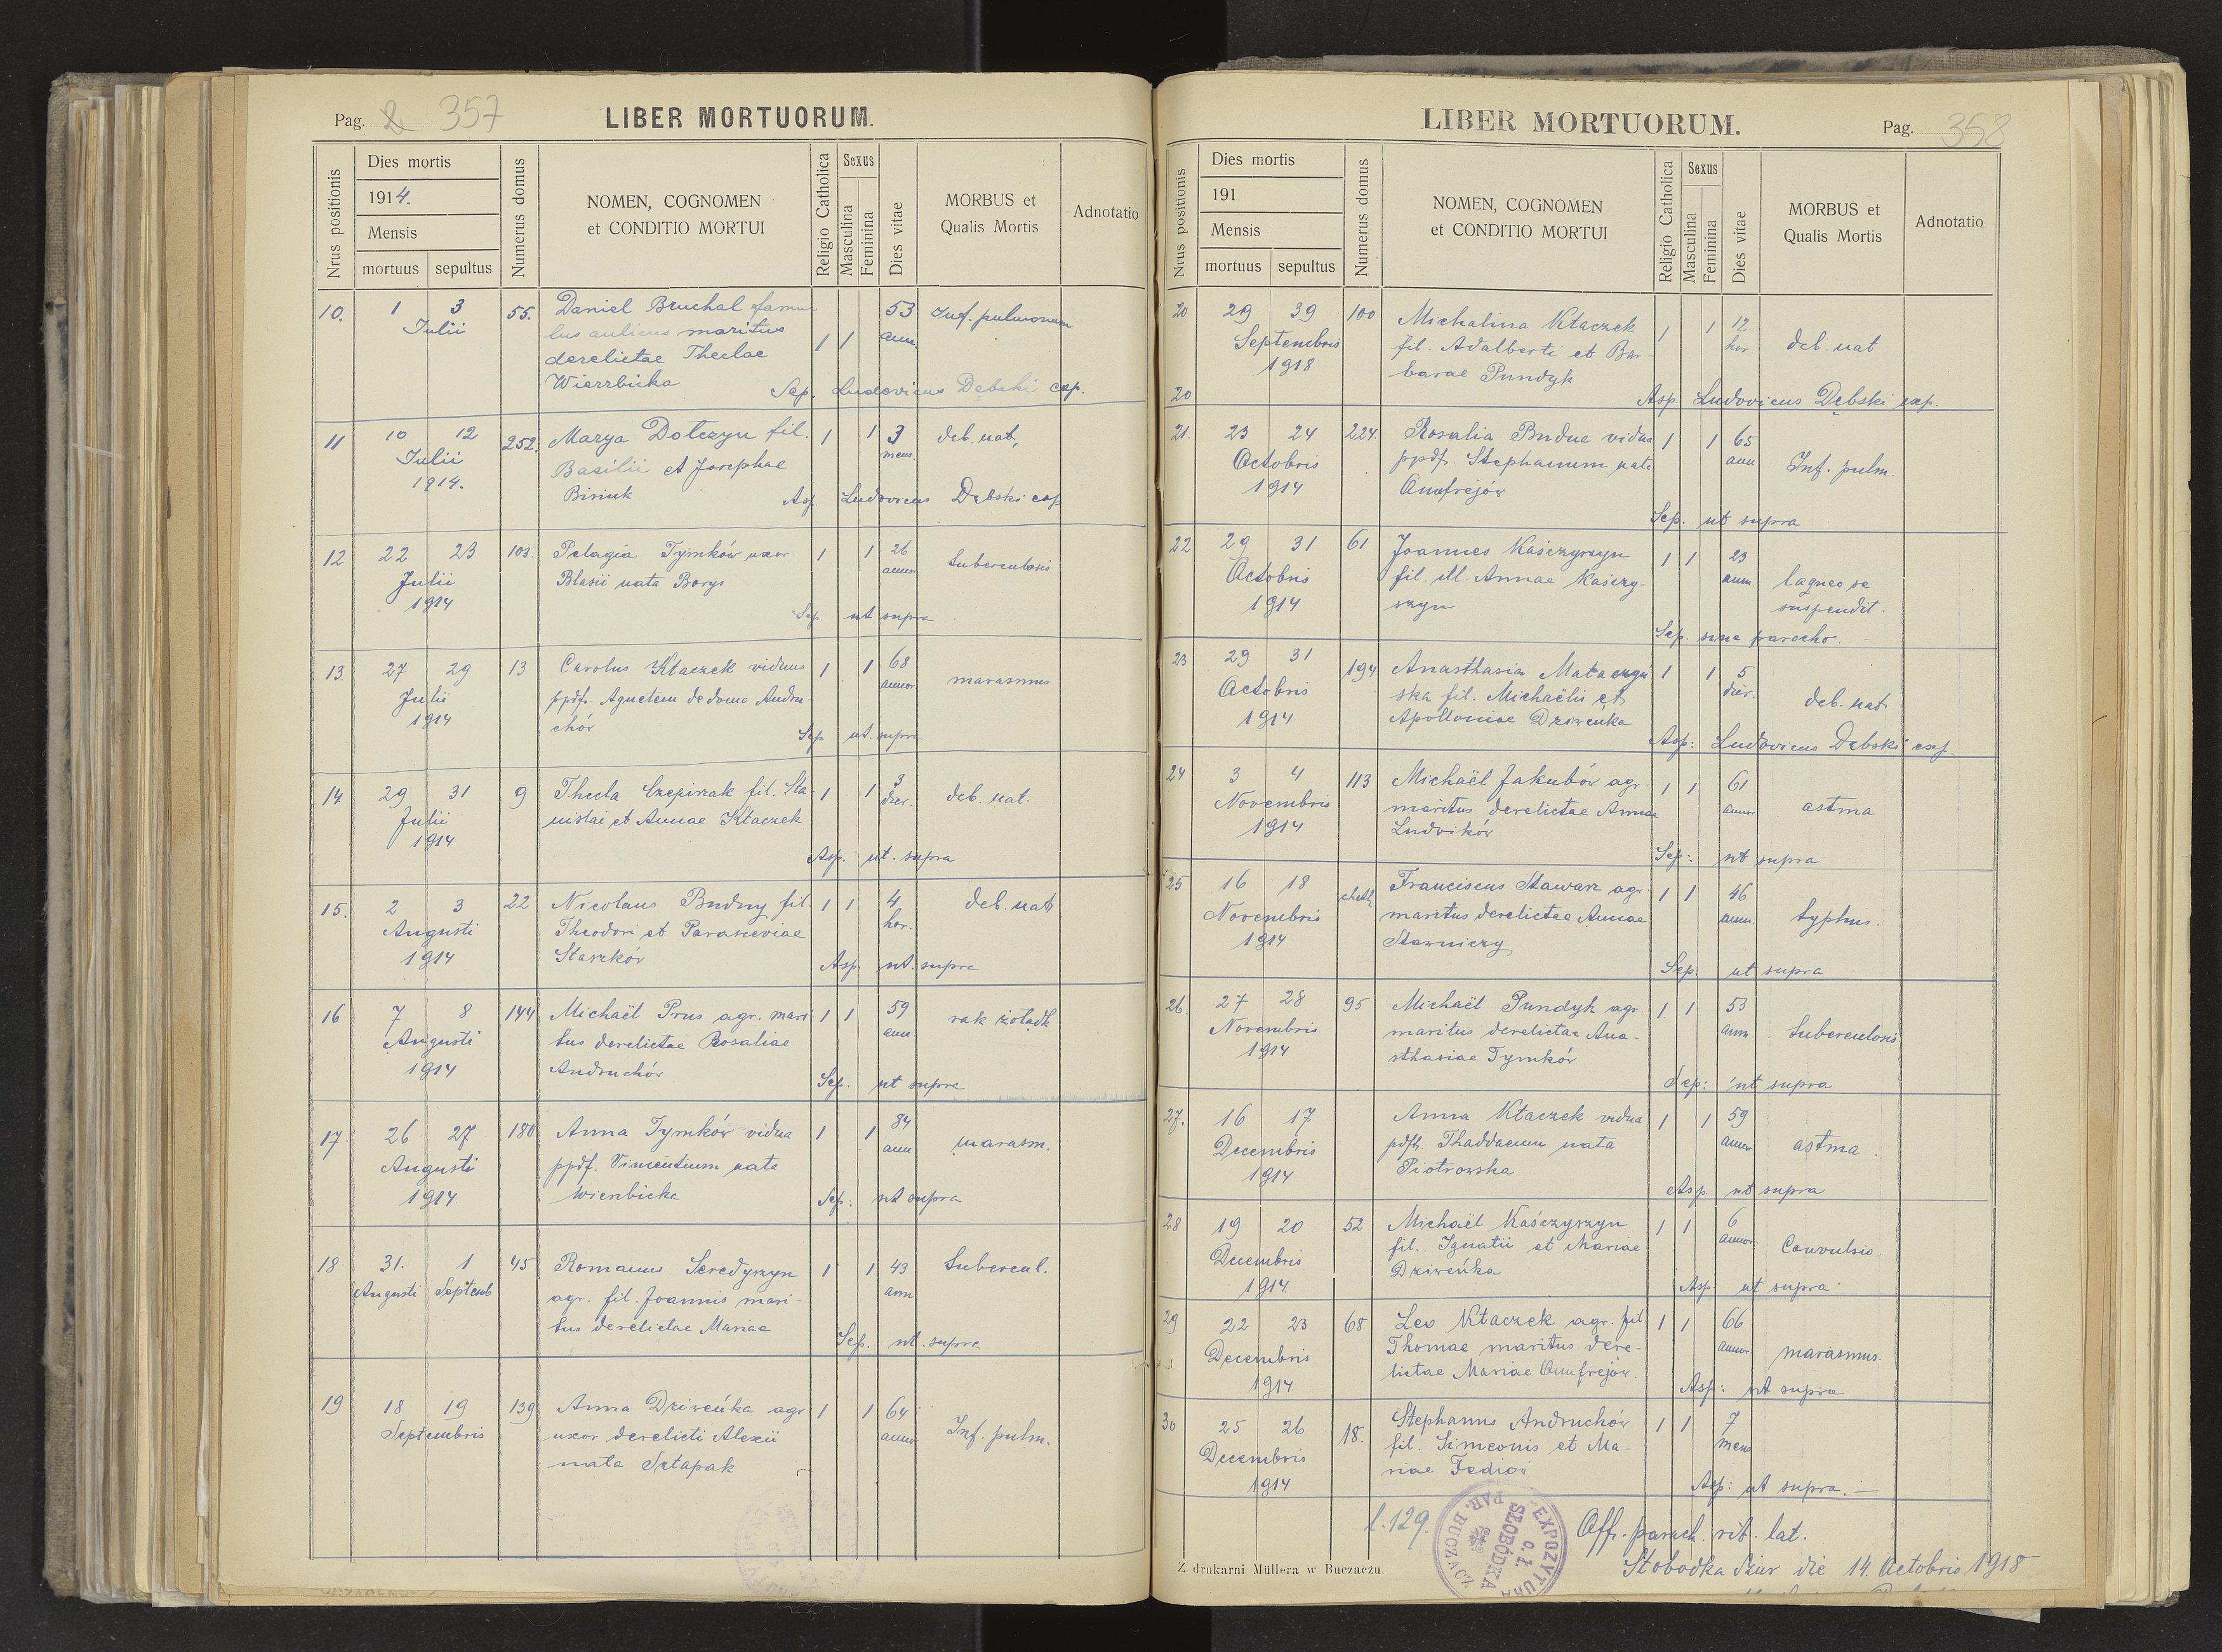 Pag. 2 357
LIBER MORTUORUM.
Nrus positionis
Dies mortis
1914.
Mensis
mortuus sepultus
Numerus domus
NOMEN, COGNOMEN
et CONDITIO MORTUI
Religio Catholica
Sexus
Masculina
Feminina
Dies vitae
MORBUS et
Qualis Mortis
Adnotatio
10. 1 3 55. Daniel Bruchal famu 53 Inf. pulmonum
Julii lus aulicus maritus 1 1 ann.
derelictae Theclae
Wierzbicka Sep. Ludovicus Dębski exp.
11 10 12 252. Marya Dołczyn fil. 1 1 3 deb. nat.
Julii Basilii et Josephae mens.
1914. Bisiuk Asp. Ludovicus Dębski exp
12 22 23 103. Pelagia Tymków uxor 1 1 26 tuberculosis
Julii Blasii nata Borys annor
1914 Sep. ut supra
13. 27 29 13 Carolus Kłaczek viduus 1 1 68 marasmus
Julii ppdf. Agnetem de domo Andru- annor
1914 chów Sep ut. supra
14 29 31 9 Thecla Czepiżak fil. Sta- 1 1 3 deb. nat.
Julii nislai et Annae Kłaczek dier.
1914
Asp. ut. supra
15. 2 3 22 Nicolaus Budny fil. 1 1 4 deb. nat
Augusti Theodori et Parasceviae hor.
1914 Staszków Asp. ut. supra
16 7 8 144 Michaël Prus agr. mari 1 1 59 rak żołądk
Augusti tus derelictae Rosaliae ann
1914 Andruchów Sep. ut supra
17. 26 27 180 Anna Tymków vidua 1 1 84 marasm.
Augusti ppdf. Vincentium nata ann
1914. Wierzbicka Sep: ut supra
18. 31. 1 45 Romanus Seredyszyn 1 1 43 tubercul.
Augusti Septemb agr. fil. Joannis mari- ann
tus derelictae Mariae
Sep. ut. supra
19 18 19 139 Anna Dziweńka agr 1 1 64 Inf. pulm.
Septembris uxor derelicti Alexii annor
nata Sztapak
LIBER MORTUORUM.
Pag. 358
Nrus positionis
Dies mortis
191
Mensis
mortuus sepultus
Numerus domus
NOMEN, COGNOMEN
et CONDITIO MORTUI
Religio Catholica
Sexus
Masculina
Feminina
Dies vitae
MORBUS et
Qualis Mortis
Adnotatio
20 29 39 100 Michalina Kłaczek 1 1 12 deb. nat
Septembris fil. Adalberti et Bar- hor.
1918 barae Pundyk
20 Asp. Ludovicus Dębski exp.
21. 23 24 224. Rosalia Budne vidua 1 1 65 Inf. pulm.
Octobris ppdf. Stephanum nata ann
1914 Onufrejów
Sep. ut supra
22 29 31 61 Joannes Kaśczyszyn 1 1 23 laqueo se
Octobris fil. ill. Annae Kaśczy- ann. suspendit.
1914 szyn
Sep. sine parocho. -
23 29 31 194 Anasthasia Mataczyń 1 1 5 deb. nat
Octobris ska fil. Michaëlis et dier.
1914 Apolloniae Dziweńka
Asp: Ludovicus Dębski exp.
24 3 4 113 Michaël Jakubów agr. 1 1 61 astma
Novembris maritus derelictae Annae annor
1914 Ludwików
Sep: ut supra
25 16 18 Franciscus Stawarz agr. 1 1 46 typhus.
Novembris maritus derelictae Annae ann.
1914 Stawniczy
Sep. ut supra
26. 27 28 95 Michaël Pundyk agr. 1. 1 53 tuberculosis
Novembris maritus derelictae Ana- ann.
1914 sthasiae Tymków
Sep: ut supra
27. 16 17 Anna Kłaczek vidua 1 1 59 astma.
Decembris pdft. Thaddaeum nata annor
1914 Piotrowska
Asp. ut supra
28 19 20 52 Michaël Kaśczyszyn 1 1 6 Convulsio.
Decembris fil. Ignatii et Mariae annor.
1914. Dziweńka
Asp ut supra.
29 22 23 68 Leo Kłaczek agr. fil. 1 1 66 marasmus.
Decembris Thomae maritus dere- annor
1914. lictae Mariae Onufrejów.
Asp: ut supra
30 25 26 18. Stephanus Andruchów 1 1 7
Decembris fil. Simeonis et Ma- mens
1914 riae Fediow
Asp: ut supra. —
l. 129. Off. paroch. rit. lat.
Słobodka Dżur die 14. Octobris 1918
EXPOZYTURA
O. Ł.
SŁOBÓDKA
PAR. BUCZACZ
Z drukarni Müllera w Buczaczu.